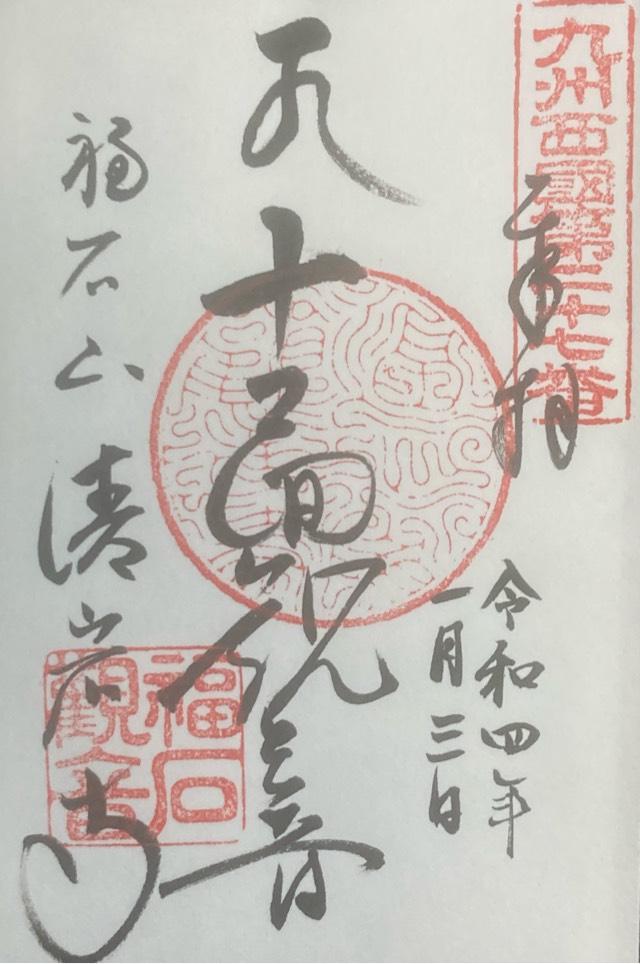 九州西國第二十七番
奉拝
令和四年
一月三日
十一面観音
福石山 清岩寺
福石
觀音